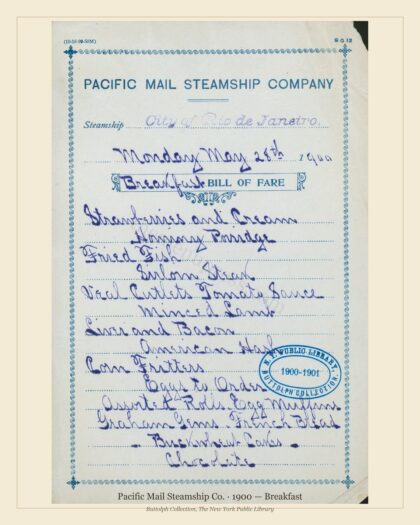 PACIFIC MAIL STEAMSHIP COMPANY
Steamship City of Rio de Janeiro.
Monday May 28th 1900
Breakfast BILL OF FARE
Strawberries and Cream
Hominy Porridge
Fried Fish
Sirloin Steak
Veal Cutlets Tomato Sauce
Minced Lamb
Liver and Bacon
American Hash
Corn Fritters
Eggs to Order
Assorted Rolls Egg Muffins
Graham Gems. French Bread
Buckwheat Cakes
Chocolate
N. Y. PUBLIC LIBRARY.
1900-1901
BUTTOLPH COLLECTION.
Pacific Mail Steamship Co. · 1900 — Breakfast
Buttolph Collection, The New York Public Library